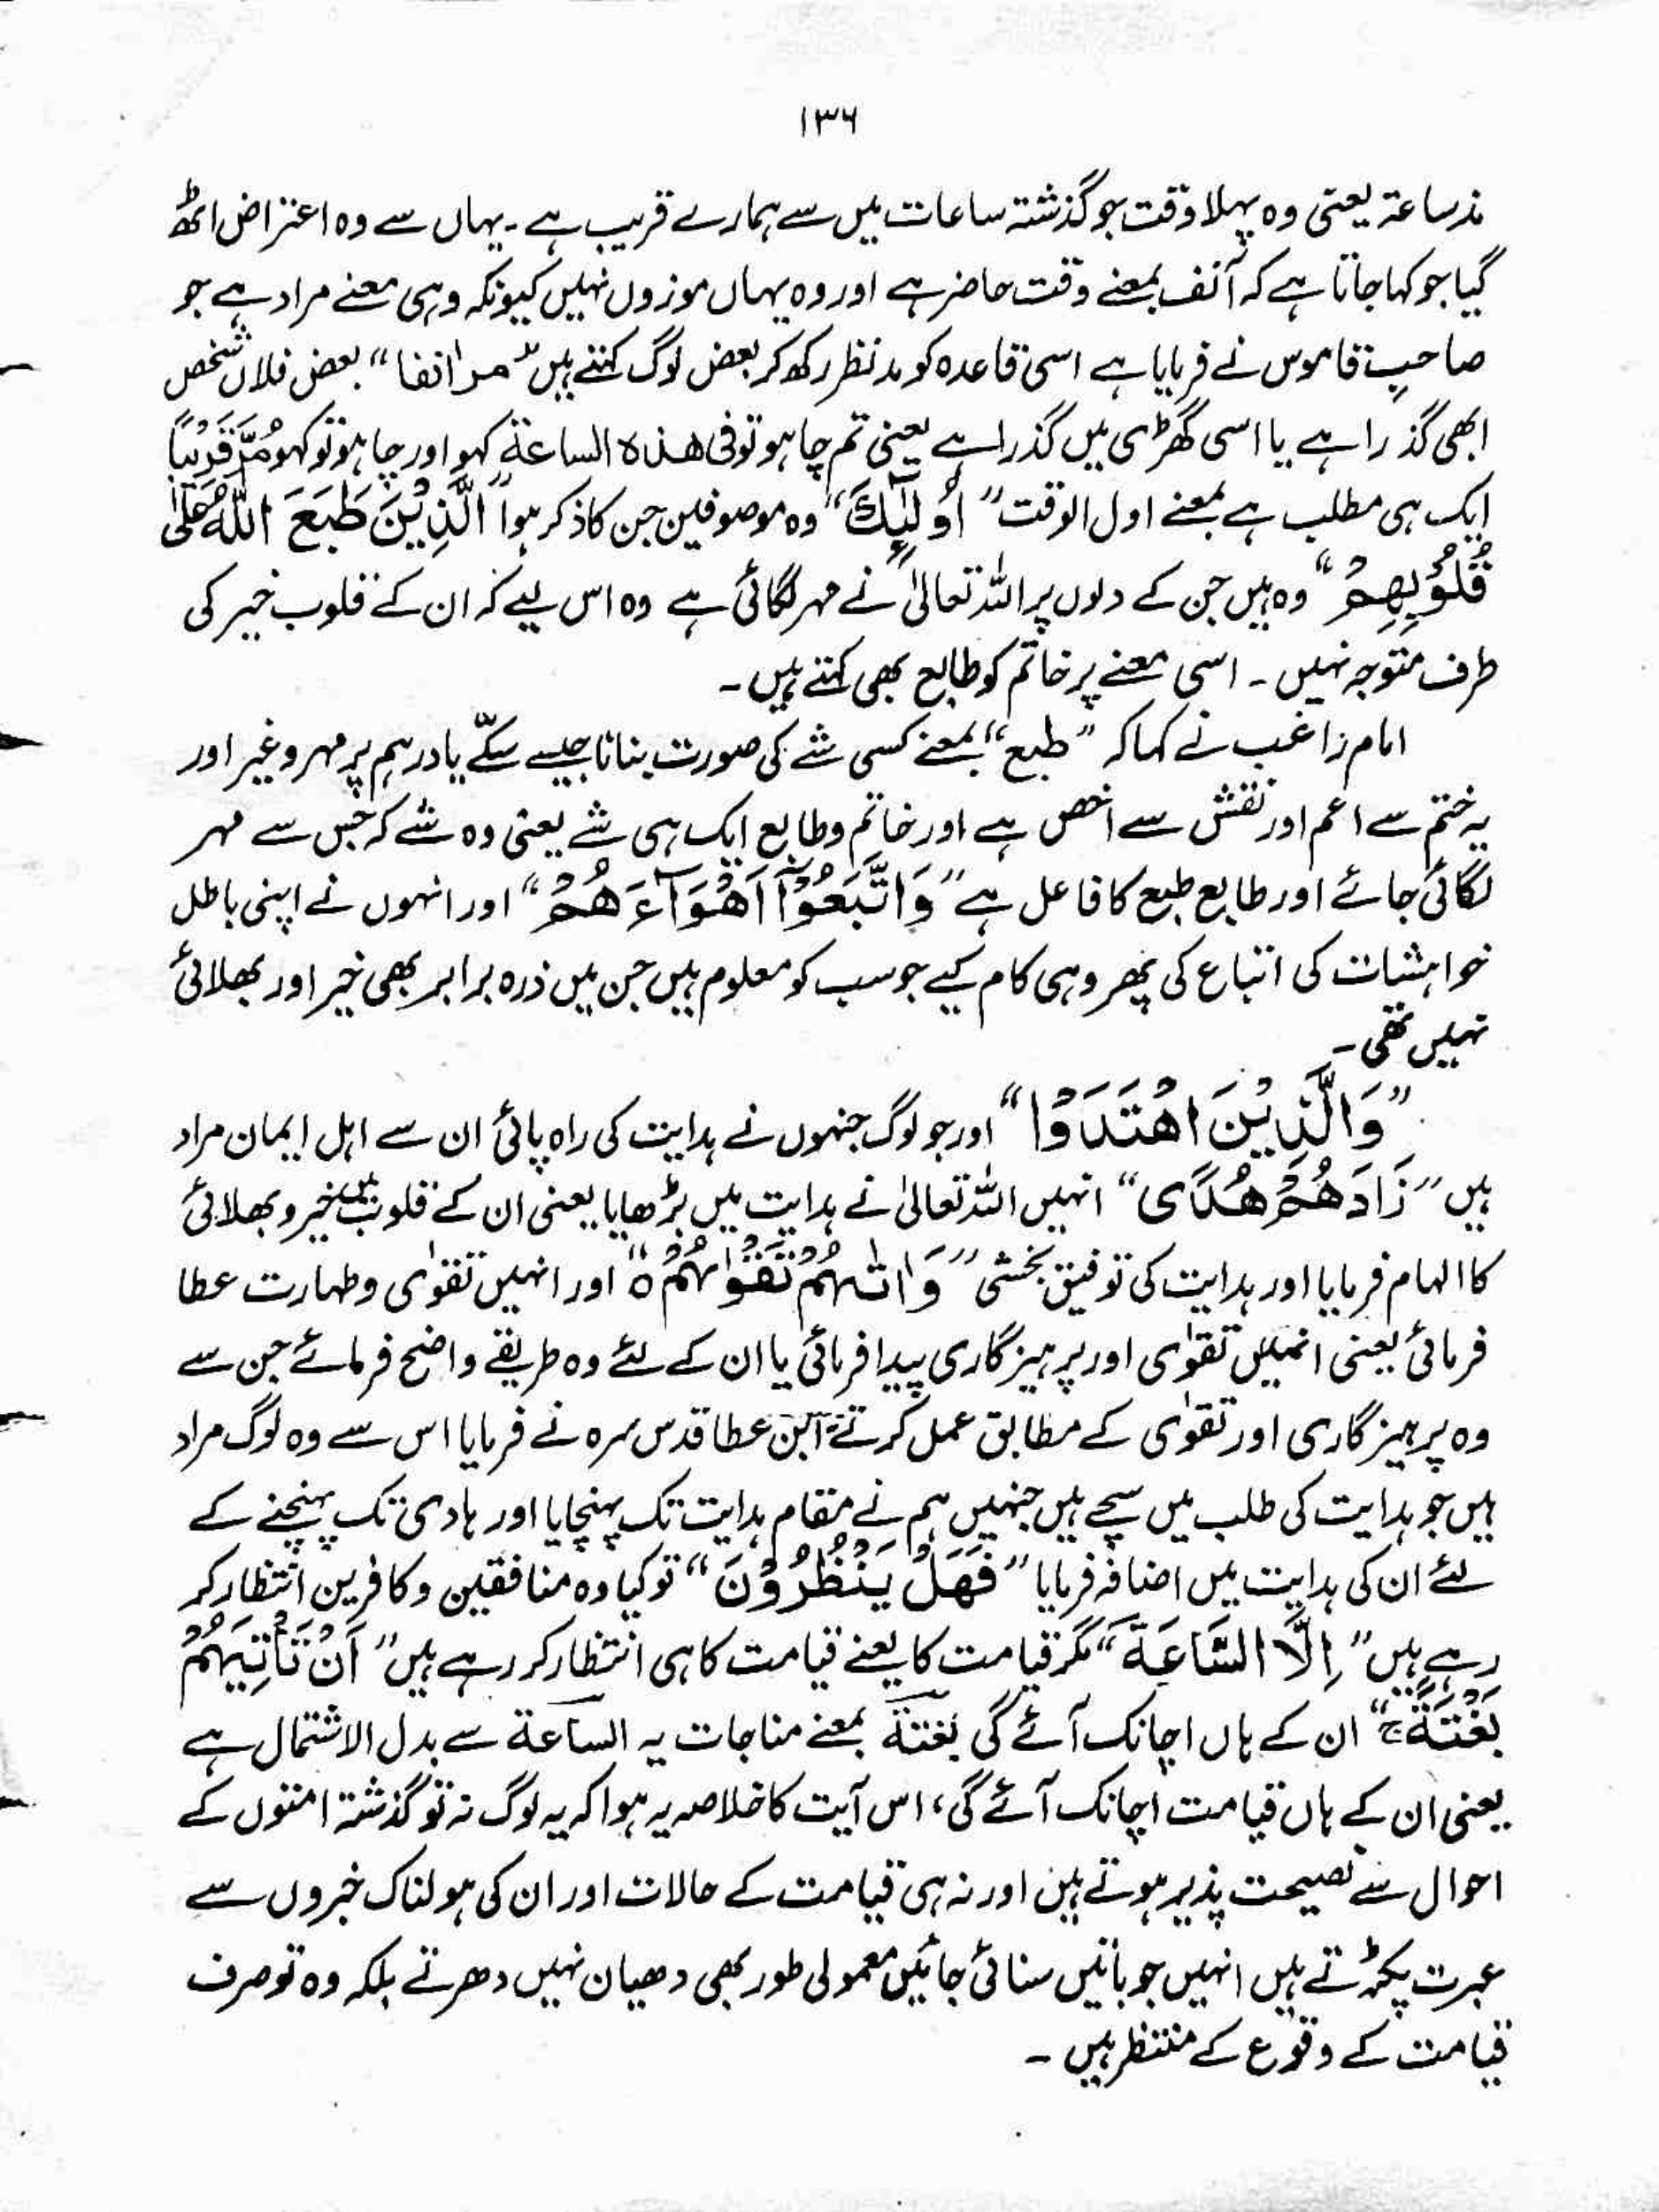 ۱۳۶
مذ ساعۃ یعنی وہ پہلا وقت جو گذشتہ ساعات میں سے ہمارے قریب ہے ۔ یہاں سے وہ اعتراض اٹھ
گیا جو کہا جاتا ہے کہ آنف بمعنے وقت حاضر ہے اور وہ یہاں موزوں نہیں کیونکہ وہی معنے مراد ہے جو
صاحبِ قاموس نے فرمایا ہے اسی قاعدہ کو مدنظر رکھ کر بعض لوگ کہتے ہیں ”مر اٰنفا“ بعض فلاں شخص
ابھی گذرا ہے یا اسی گھڑی میں گذرا ہے یعنی تم چاہو تو فی ھذہ الساعۃ کہو اور چاہو تو کہو مُرَّ قَرِیْبًا
ایک ہی مطلب ہے بمعنے اول الوقت ”اُولٰٓئِکَ“ وہ موصوفین جن کا ذکر ہوا ”الَّذِیْنَ طَبَعَ اللّٰہُ عَلٰی
قُلُوْبِھِمْ“ وہ ہیں جن کے دلوں پر اللہ تعالیٰ نے مہر لگائی ہے وہ اس لیے کہ ان کے قلوب خیر کی
طرف متوجہ نہیں ۔ اسی معنے پر خاتم کو طابع بھی کہتے ہیں ۔
امام راغب نے کہا کہ ”طبع“ بمعنے کسی شے کی صورت بنانا جیسے سکّے یا درہم پر مہر وغیر اور
یہ ختم سے اعم اور نقش سے اخص ہے اور خاتم و طابع ایک ہی شے یعنی وہ شے کہ جس سے مہر
لگائی جائے اور طابع طبع کا فاعل ہے ”وَاتَّبَعُوْٓا اَھْوَآءَھُمْ“ اور انہوں نے اپنی باطل
خواہشات کی اتباع کی پھر وہی کام کیے جو سب کو معلوم ہیں جن میں ذرہ برابر بھی خیر اور بھلائی
نہیں تھی ۔
”وَالَّذِیْنَ اھْتَدَوْا“ اور جو لوگ جنہوں نے ہدایت کی راہ پائی ان سے اہل ایمان مراد
ہیں ”زَادَھُمْ ھُدًی“ انہیں اللہ تعالیٰ نے ہدایت میں بڑھایا یعنی ان کے قلوب میں خیر و بھلائی
کا الہام فرمایا اور ہدایت کی توفیق بخشی ”وَاٰتٰىہُمْ تَقْوٰىہُمْ ہ“ اور انہیں تقوٰی و طہارت عطا
فرمائی یعنی انمیں تقوٰی اور پرہیزگاری پیدا فرمائی یا ان کے لئے وہ طریقے واضح فرمائے جن سے
وہ پرہیزگاری اور تقوٰی کے مطابق عمل کرتے ۔ ابن عطا قدس سرہ نے فرمایا اس سے وہ لوگ مراد
ہیں جو ہدایت کی طلب میں سچے ہیں جنہیں ہم نے مقام ہدایت تک پہنچایا اور ہادی تک پہنچنے کے
لئے ان کی ہدایت میں اضافہ فرمایا ”فَھَلْ یَنْظُرُوْنَ“ تو کیا وہ منافقین و کافرین انتظار کر
رہے ہیں ”اِلَّا السَّاعَۃَ“ مگر قیامت کا یعنے قیامت کا ہی انتظار کر رہے ہیں ”اَنْ تَاْتِیَہُمْ
بَغْتَۃً ج“ ان کے ہاں اچانک آئے گی بغتۃ بمعنے مناجات یہ الساعۃ سے بدل الاشتمال ہے
یعنی ان کے ہاں قیامت اچانک آئے گی، اس آیت کا خلاصہ یہ ہوا کہ یہ لوگ نہ تو گذشتہ امتوں کے
احوال سے نصیحت پذیر ہوتے ہیں اور نہ ہی قیامت کے حالات اور ان کی ہولناک خبروں سے
عبرت پکڑتے ہیں انہیں جو باتیں سنائی جائیں معمولی طور بھی دھیان نہیں دھرتے بلکہ وہ تو صرف
قیامت کے وقوع کے منتظر ہیں ۔